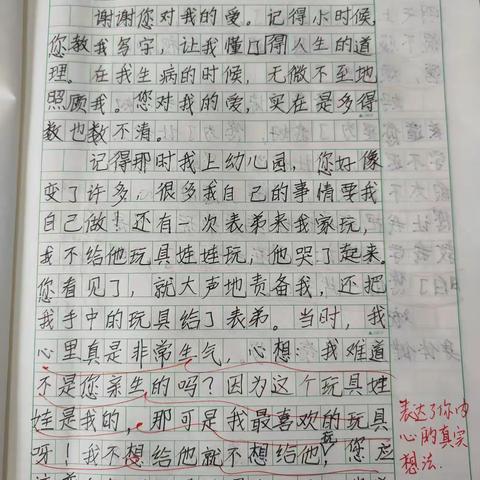 谢谢您对我的爱。记得小时候,
您教我写字,让我懂了得人生的道
理。在我生病的时候,无微不至地
照顾我。您对我的爱,实在是多得
数也数不清。
记得那时我上幼儿园,您好像
变了许多,很多我自己的事情要我
自己做!还有一次表弟来我家玩,
我不给他玩具娃娃玩,他哭了起来。
您看见了,就大声地责备我,还把
我手中的玩具给了表弟。当时,我
心里真是非常生气,心想:我难道
不是您亲生的吗?因为这个玩具娃
娃是我的,那可是我最喜欢的玩具
呀!我不想给他就不想给他玩,您应
表达了你内
心的真实
想法.